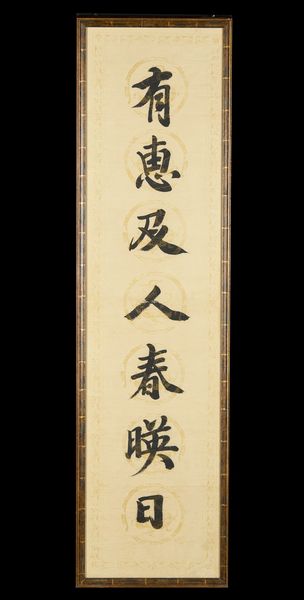 有恵及人春暎日